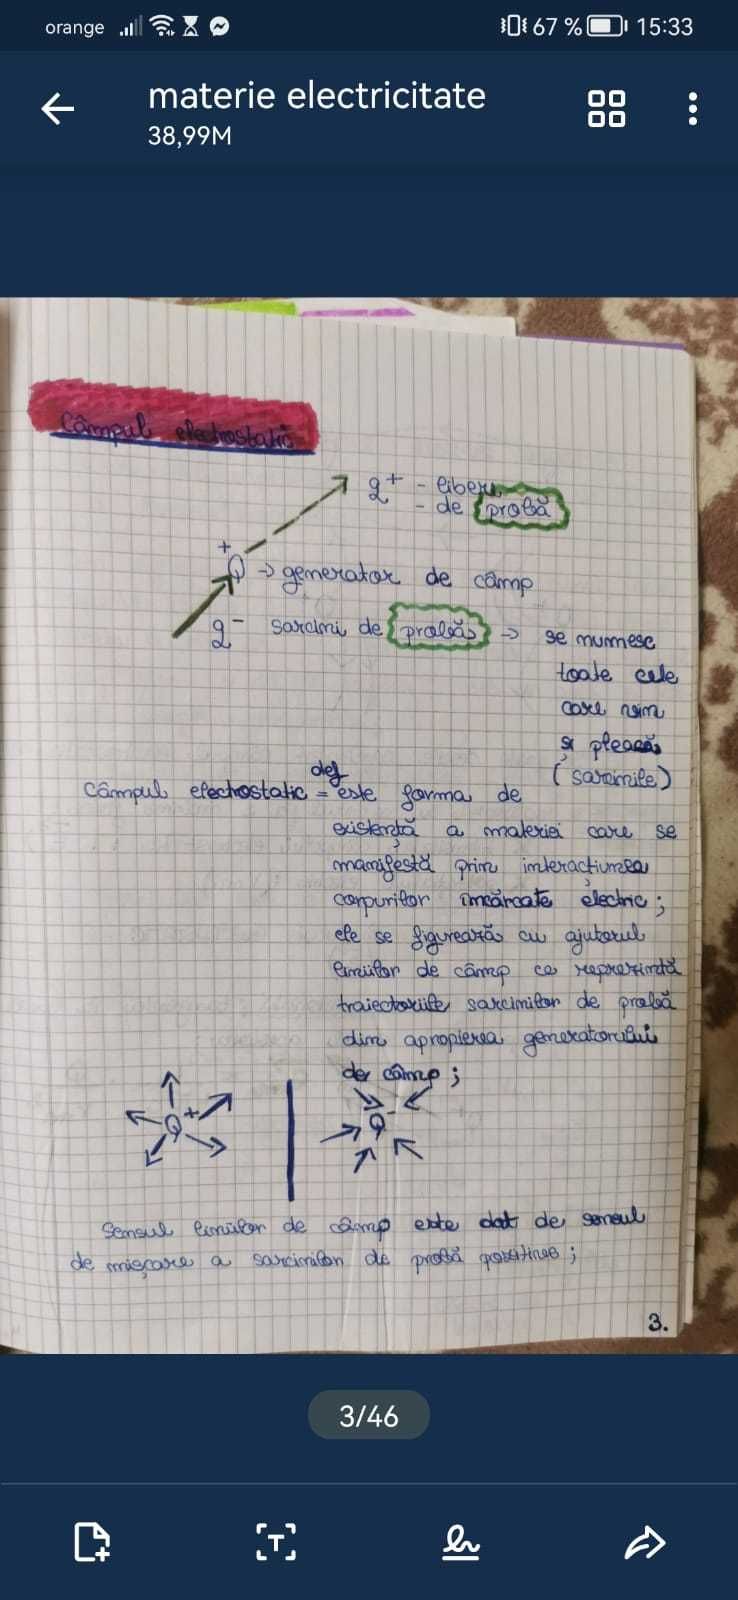 orange 67 % 15:33
materie electricitate
38,99M
Câmpul electrostatic
q+ - liberi
- de probă
+
Q → generator de câmp
q- sarcini de probăs → se numesc
toate cele
care vin
și pleacă
(sarcinile)
Câmpul electrostatic =def este forma de
existență a materiei care se
manifestă prin interacțiunea
corpurilor încărcate electric;
ele se figurează cu ajutorul
liniilor de câmp ce reprezintă
traiectoriile sarcinilor de probă
din apropierea generatorului
de câmp;
Q+ Q-
Sensul liniilor de câmp este dat de sensul
de mișcare a sarcinilor de probă pozitive;
3.
3/46
T